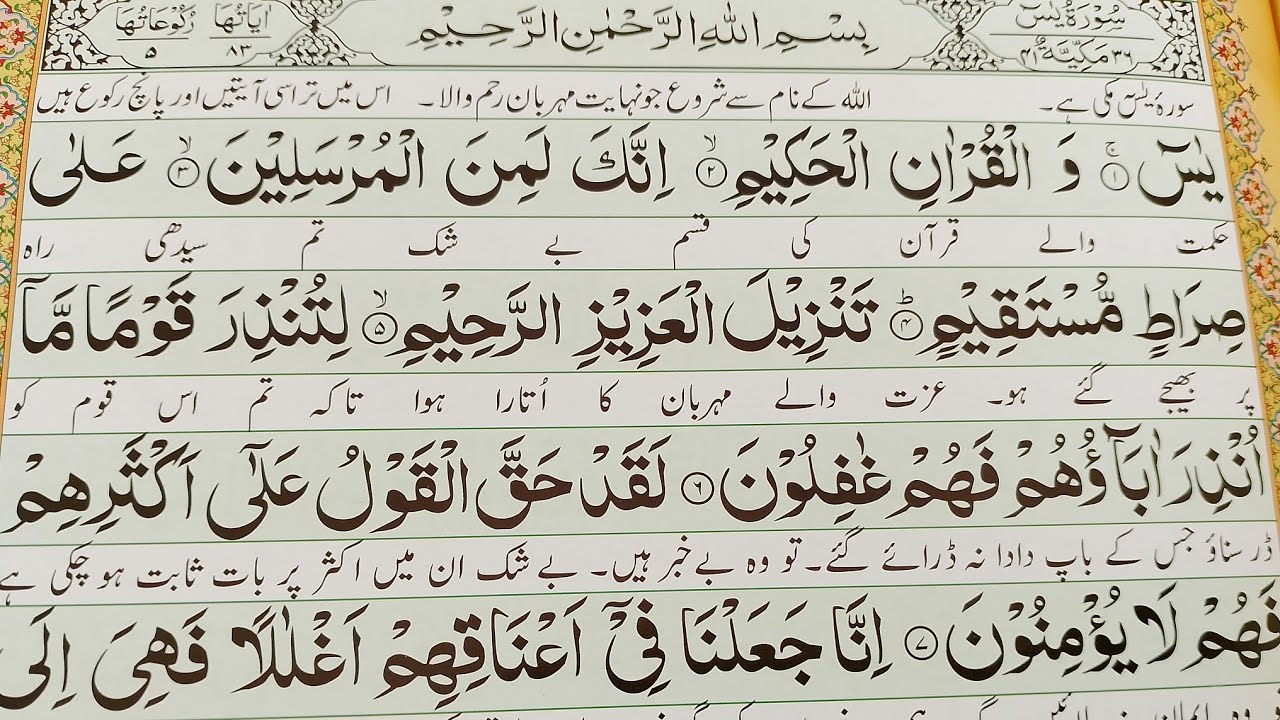 سُوْرَةُ يٰسٓ ٣٦ مَكِّيَّةٌ ٤١
بِسْمِ اللّٰهِ الرَّحْمٰنِ الرَّحِيْمِ
اٰيَاتُهَا ٨٣ رُكُوْعَاتُهَا ٥
سورۂ یٰسٓ مکی ہے۔ اللہ کے نام سے شروع جو نہایت مہربان رحم والا۔ اس میں تراسی آیتیں اور پانچ رکوع ہیں
يٰسٓ ۚ ١ وَ الْقُرْاٰنِ الْحَكِيْمِ ۙ ٢ اِنَّكَ لَمِنَ الْمُرْسَلِيْنَ ۙ ٣ عَلٰى
حکمت والے قرآن کی قسم بے شک تم سیدھی راہ
صِرَاطٍ مُّسْتَقِيْمٍ ؕ ٤ تَنْزِيْلَ الْعَزِيْزِ الرَّحِيْمِ ۙ ٥ لِتُنْذِرَ قَوْمًا مَّاۤ
پر بھیجے گئے ہو۔ عزت والے مہربان کا اُتارا ہوا تاکہ تم اس قوم کو
اُنْذِرَ اٰبَآؤُهُمْ فَهُمْ غٰفِلُوْنَ ٦ لَقَدْ حَقَّ الْقَوْلُ عَلٰۤى اَكْثَرِهِمْ
ڈر سناؤ جس کے باپ دادا نہ ڈرائے گئے۔ تو وہ بے خبر ہیں۔ بے شک ان میں اکثر پر بات ثابت ہو چکی ہے
فَهُمْ لَا يُؤْمِنُوْنَ ٧ اِنَّا جَعَلْنَا فِيْۤ اَعْنَاقِهِمْ اَغْلٰلًا فَهِيَ اِلَى